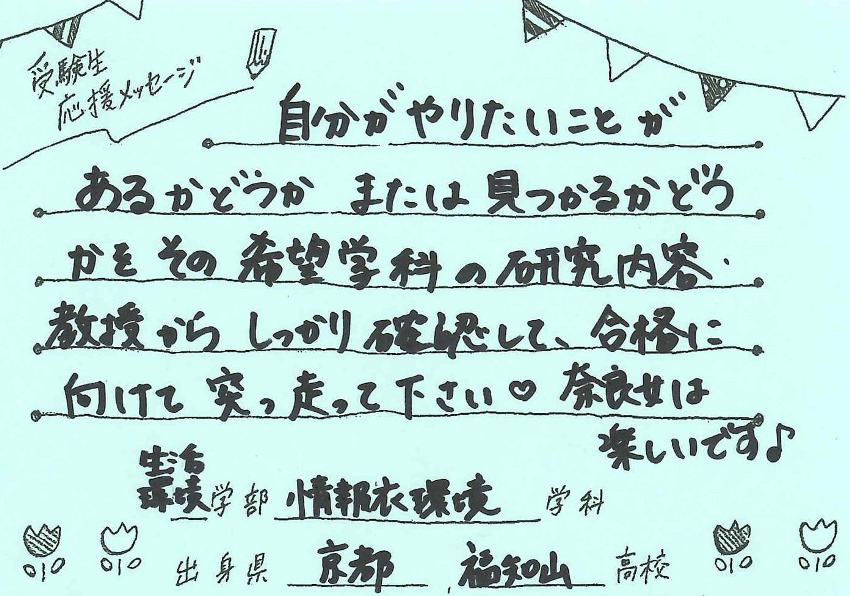 受験生
応援メッセージ
自分がやりたいことが
あるかどうか または 見つかるかどう
かを その 希望学科の研究内容・
教授から しっかり確認して、合格に
向けて 突っ走って下さい♡ 奈良女は
楽しいです♪
生活
環境学部 情報衣環境 学科
出身県 京都 福知山 高校